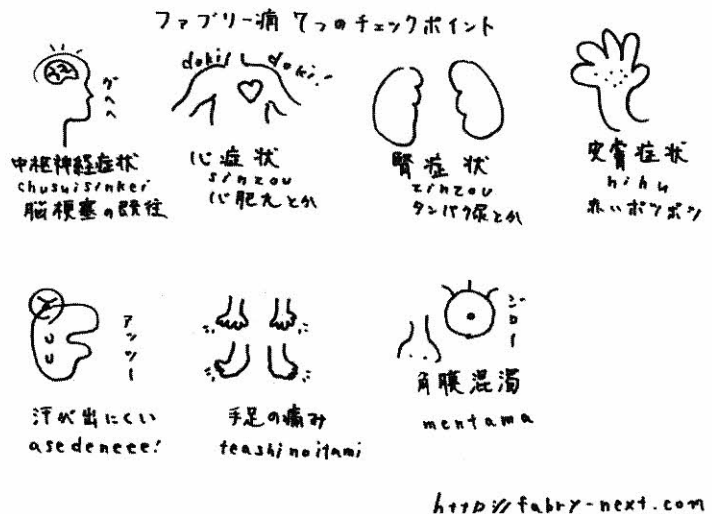 ファブリー病 7つのチェックポイント
グヘヘ
doki!
doki!
中枢神経症状
chusuisinkei
脳梗塞の既往
心症状
sinzou
心肥大とか
腎症状
zinzou
タンパク尿とか
皮膚症状
hihu
赤いポツポツ
アッツー
汗が出にくい
asedeneee!
手足の痛み
teashinoitami
ジロー
角膜混濁
mentama
http://fabry-next.com